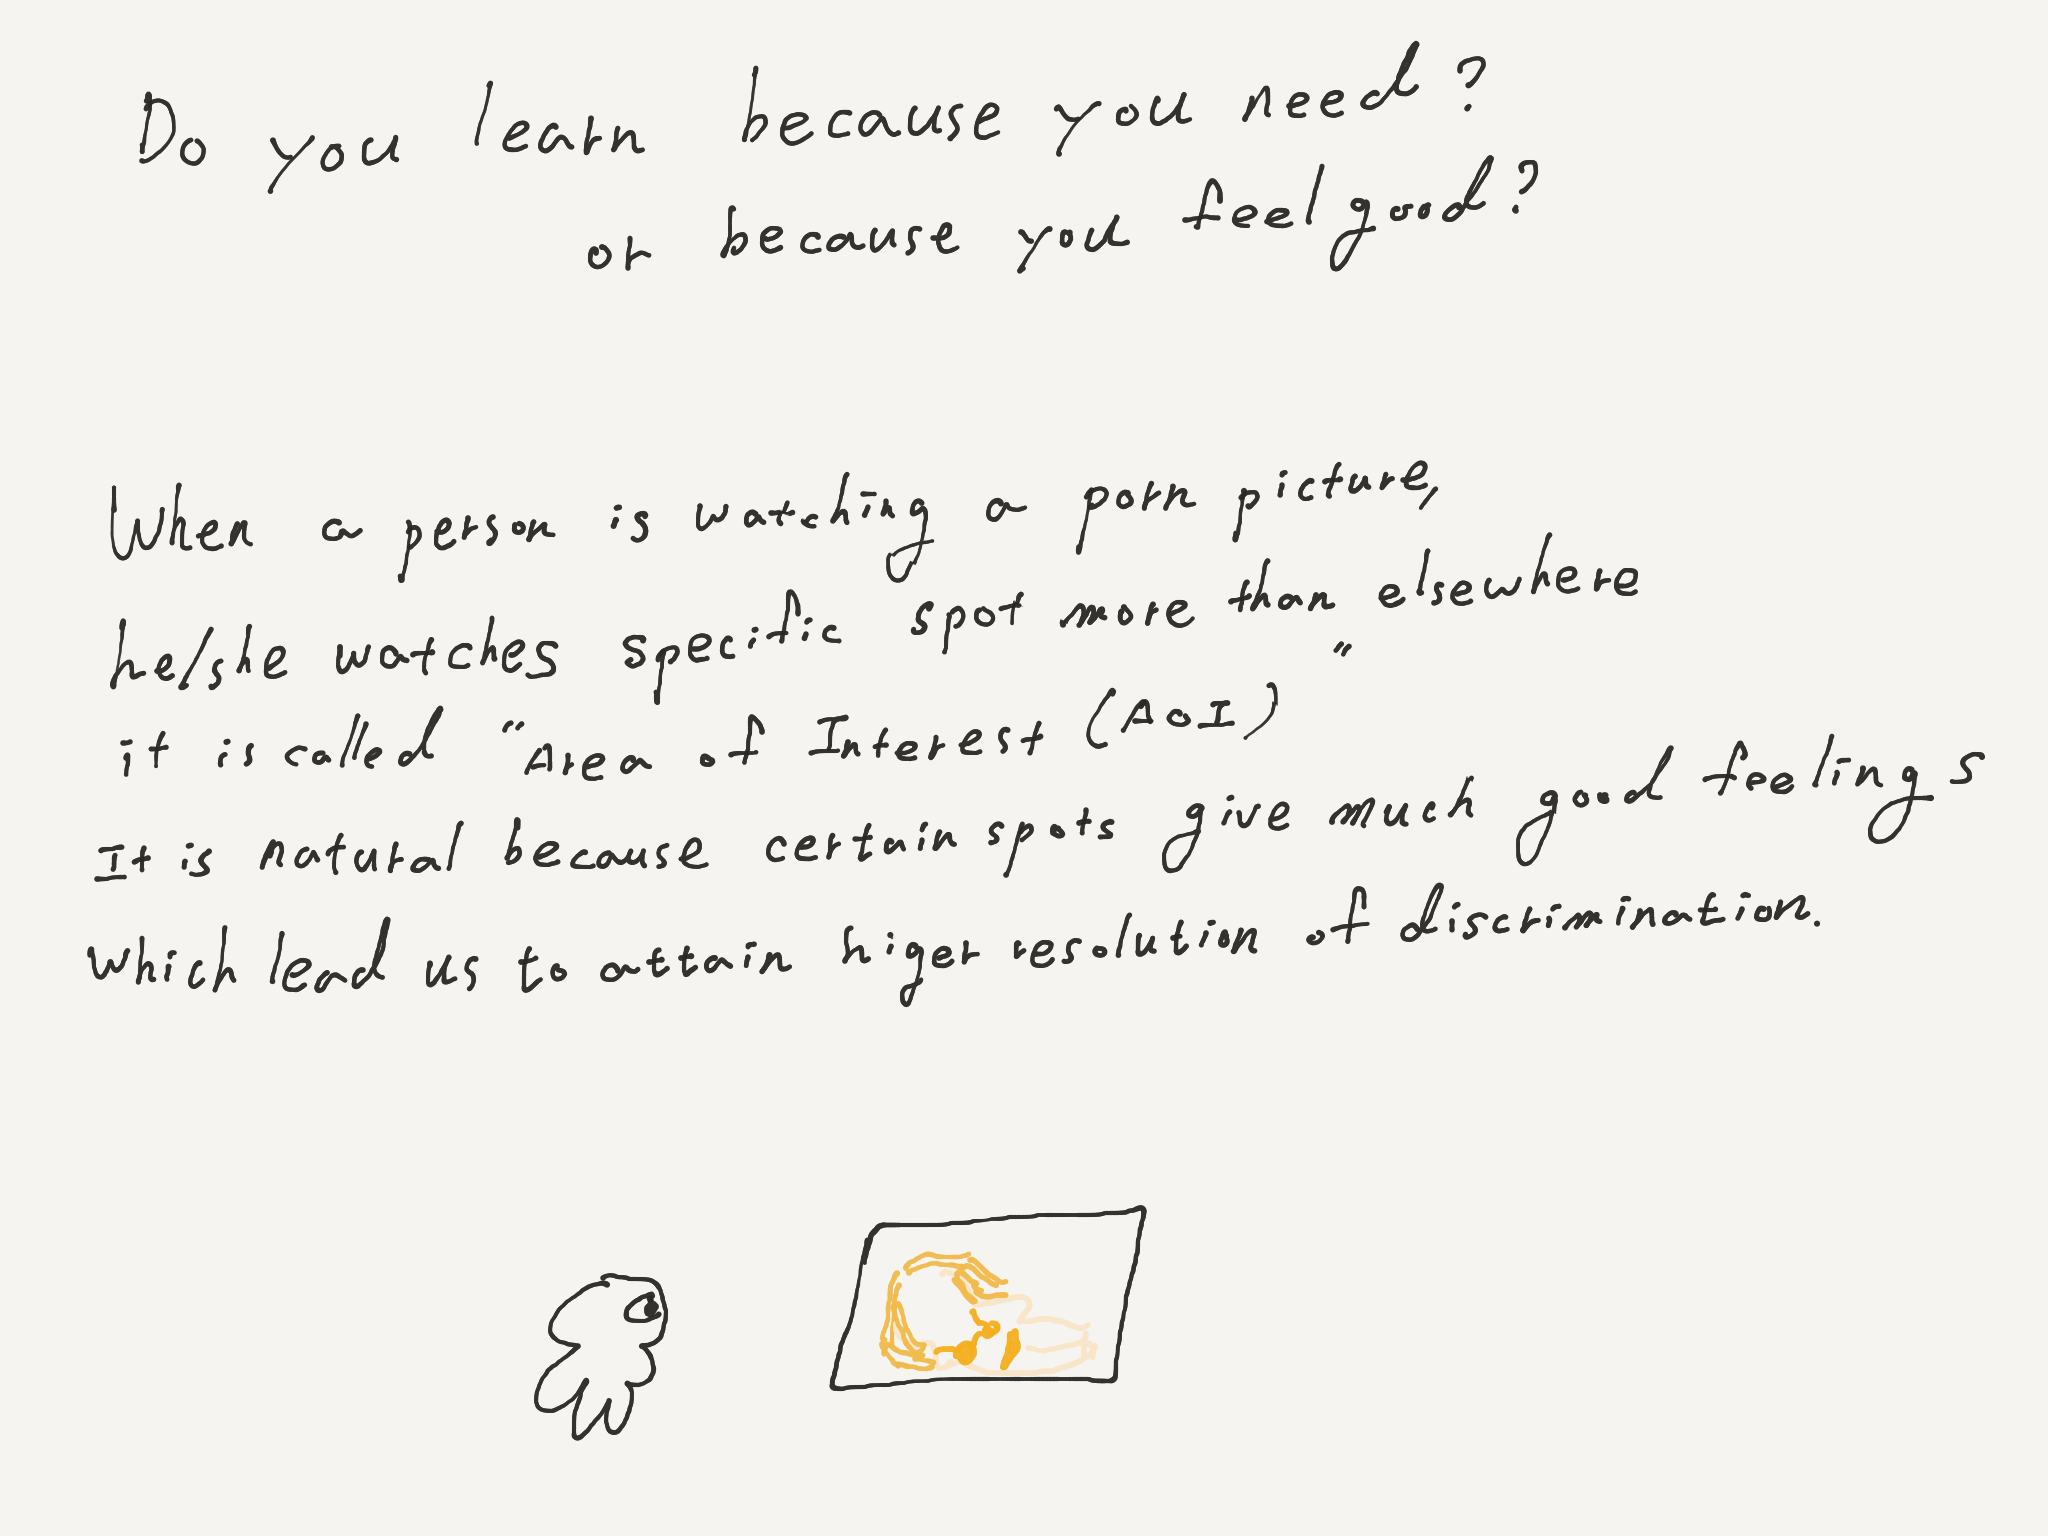 Do you learn because you need?
or because you feel good?
When a person is watching a porn picture,
he/she watches specific spot more than elsewhere
it is called "Area of Interest (AoI)"
It is natural because certain spots give much good feelings
which lead us to attain higer resolution of discrimination.